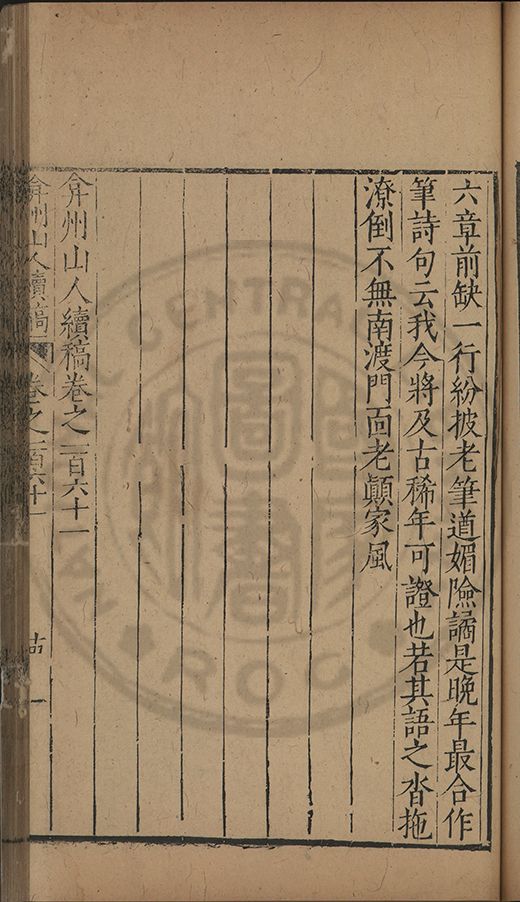 六章前缺一行紛披老筆遒媚險譎是晚年最合作
筆詩句云我今將及古稀年可證也若其語之沓拖
潦倒不無南渡門面老顛家風
弇州山人續稿卷之一百六十一
弇州山人續稿 卷之一百六十一